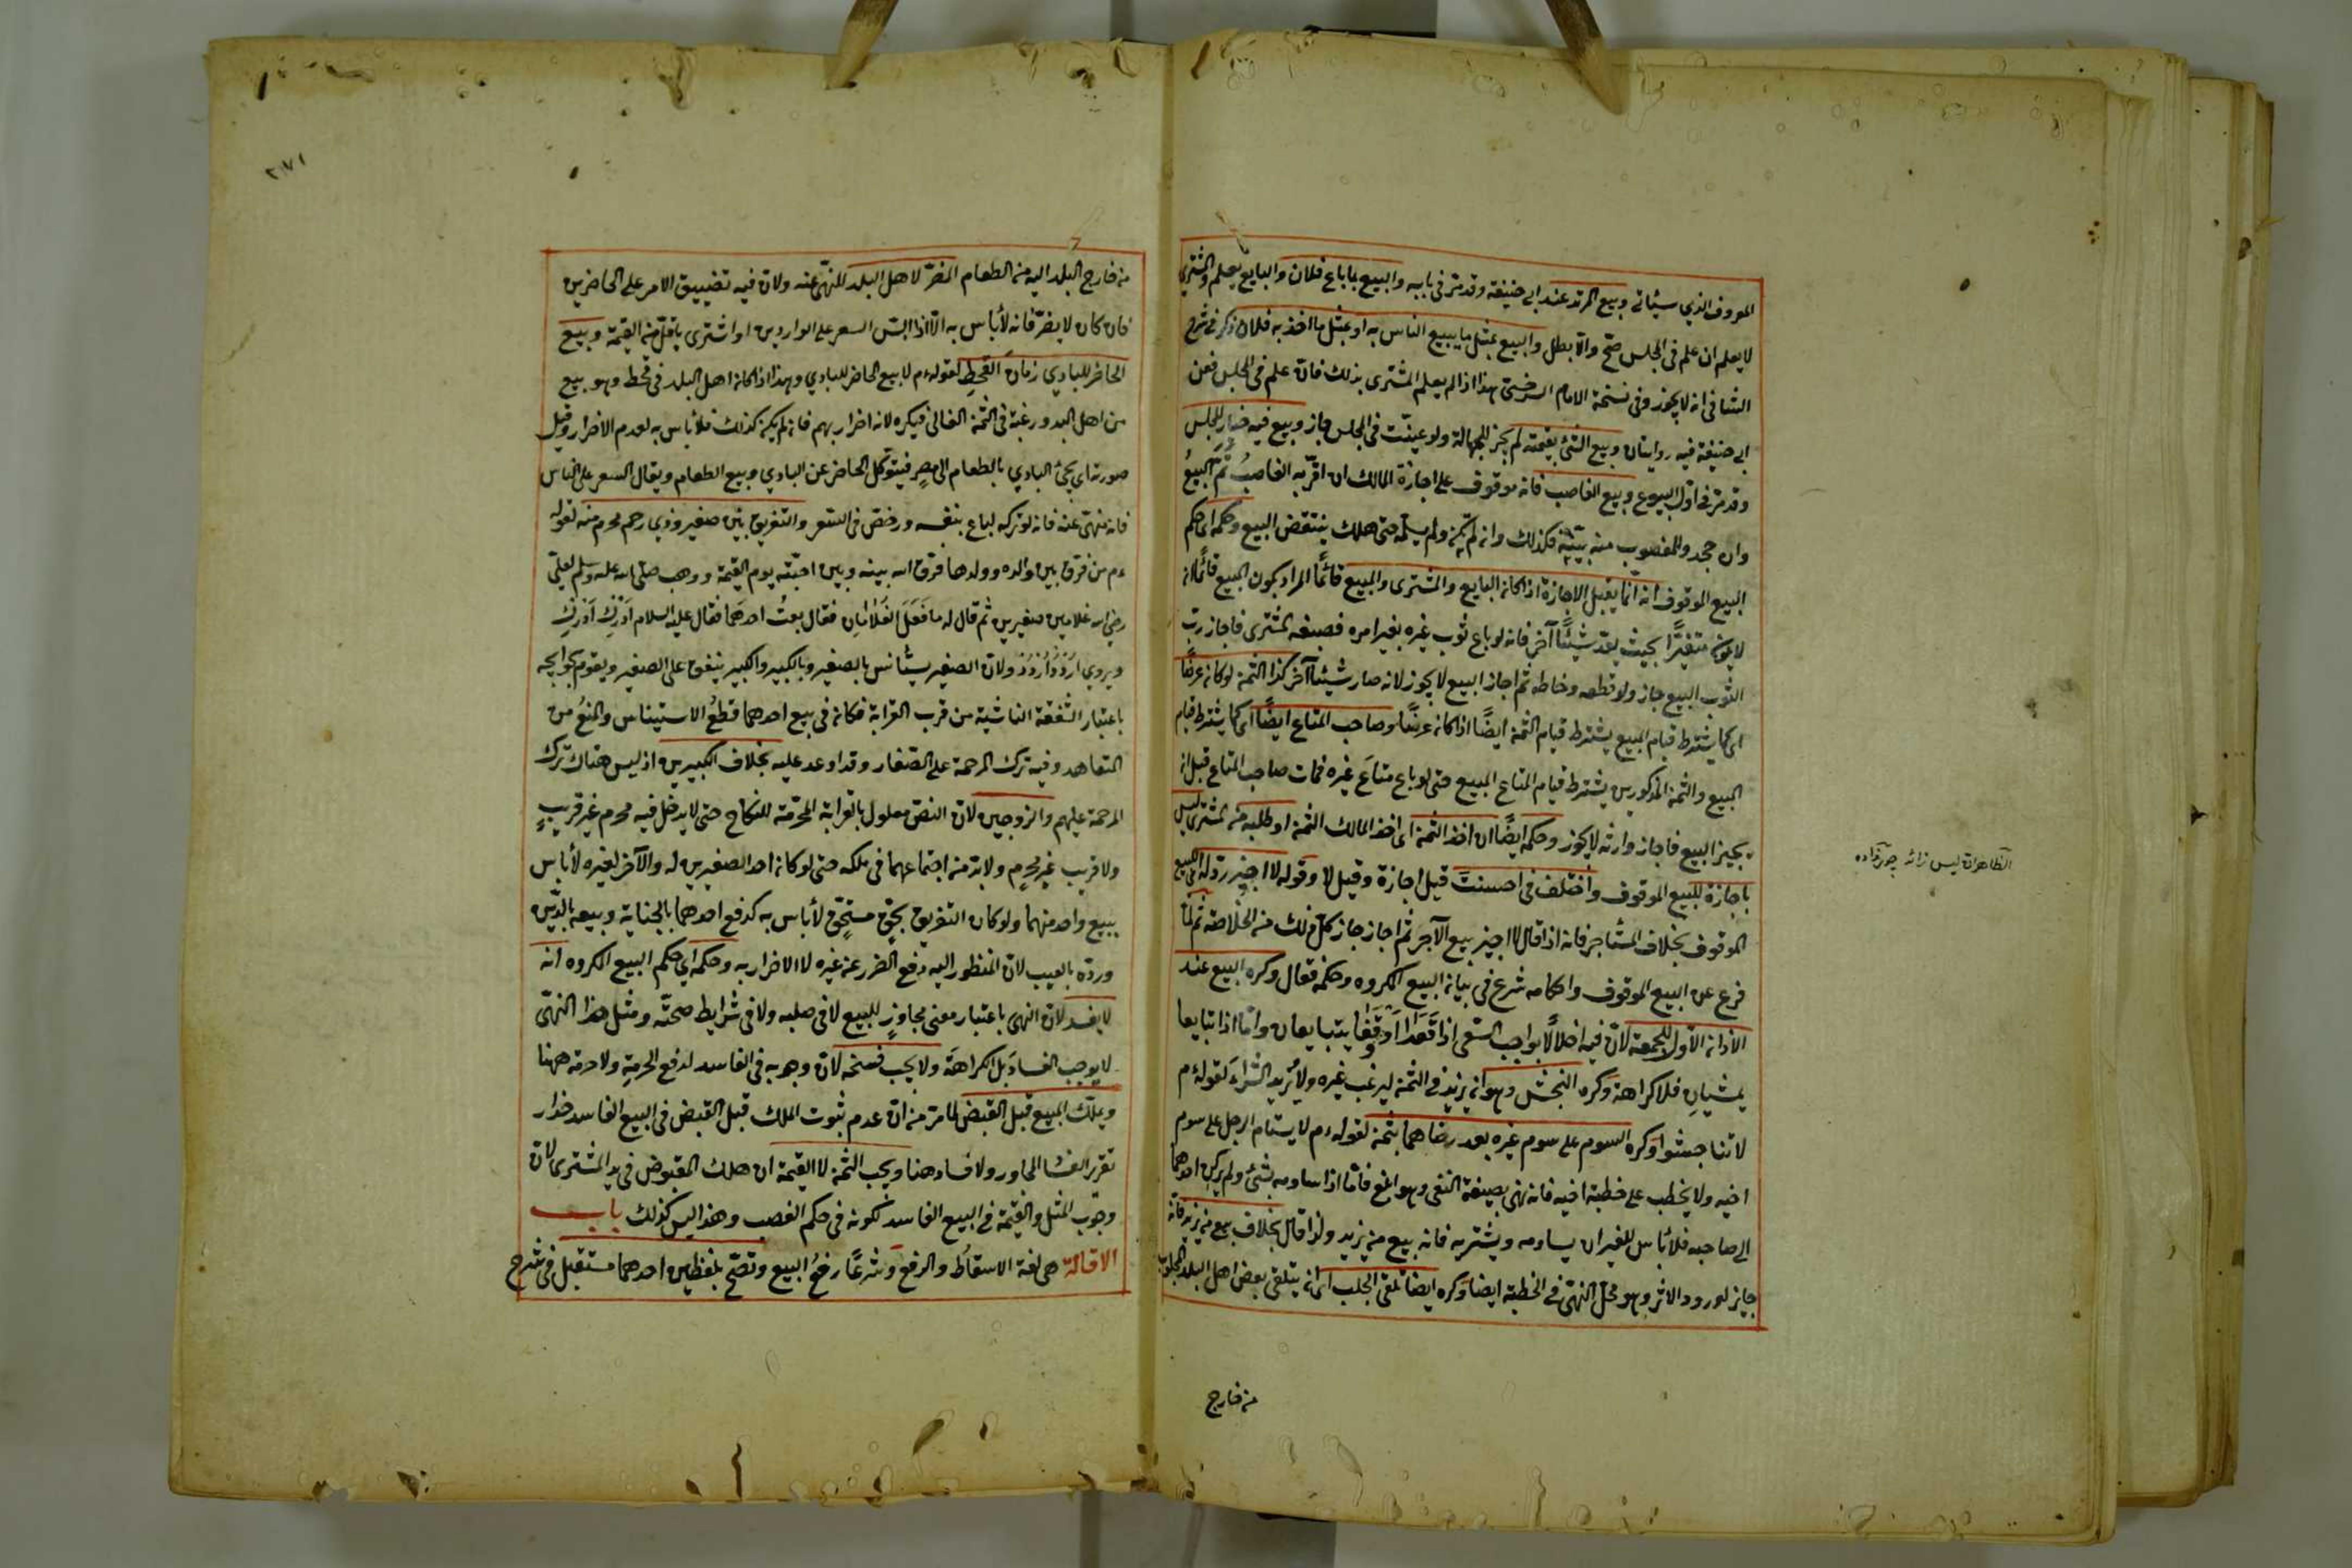 المعروف الذي سيأتي وبيع المرتد عند ابي حنيفة وقد مر في بابه والبيع بما باع فلان والبايع يعلم والمشتري
لا يعلم ان علم في المجلس صح والا بطل والبيع بمثل ما يبيع الناس به او بمثل ما اخذ به فلان ذكر في شرح
الشافي انه لا يجوز وفي نسخة الامام السرخسي هذا اذا لم يعلم المشتري بذلك فان علم في المجلس فعن
ابي حنيفة فيه روايتان وبيع الشئ بقيمته لم يجز للجهالة ولو عينت في المجلس جاز وبيع فيه خيار المجلس
وقد مر في اول البيوع وبيع الغاصب فانه موقوف على اجازة المالك ان اقر به الغاصب تم البيع
وان جحد وللمغصوب منه بينة فكذلك وان لم تكن ولم يسلمه حتى هلك ينتقض البيع وحكمه اى حكم
البيع الموقوف انه انما يقبل الاجازة اذا كان البايع والمشترى والمبيع قائما المراد بكون المبيع قائما ان
لا يكون متغيرا بحيث يعد شيئا آخر فانه لو باع ثوب غيره بغير امره فصبغه المشترى فاجاز رب
الثوب البيع جاز ولو قطعه وخاطه ثم اجاز البيع لا يجوز لانه صار شيئا آخر كذا الثمن لو كان عرضا
اى كما يشترط قيام المبيع يشترط قيام الثمن ايضا اذا كان عرضا وصاحب المتاع ايضا اى كما يشترط قيام
المبيع والثمن المذكورين يشترط قيام المتاع المبيع حتى لو باع متاع غيره فمات صاحب المتاع قبل ان
يجيز البيع فاجاز وارثه لا يجوز وحكمه ايضا ان اخذ الثمن اى اخذ المالك الثمن او طلبه من المشترى ليس
باجازة للبيع الموقوف واختلف في احسنت قيل اجازة وقيل لا وقوله لا اجيز رد له اى للبيع
الموقوف بخلاف المستأجر فانه اذا قال لا اجيز بيع الآجر ثم اجاز جاز كل ذلك من الخلاصة ثم لما
فرغ عن البيع الموقوف واحكامه شرع في بيان البيع المكروه وحكمه فقال وكره البيع عند
الاذان الاول للجمعة لان فيه اخلالا بواجب السعى اذا قعدا او وقفا يتبايعان واما اذا تبايعا
يمشيان فلا كراهة وكره النجش وهو ان يزيد في الثمن ليرغب غيره ولا يريد الشراء لقوله ءم
لا تناجشوا وكره السوم على سوم غيره بعد رضاهما بثمن لقوله ءم لا يستام الرجل على سوم
اخيه ولا يخطب على خطبة اخيه فانه نهى بصيغة النفى وهو ابلغ فاما اذا ساومه بشئ ولم يركن احدهما
الى صاحبه فلا بأس للغير ان يساومه ويشتريه فانه بيع من يزيد ولذا قال بخلاف بيع من يزيد فانه
جايز لورود الاثر وهو محل النهى في الخطبة ايضا وكره ايضا تلقى الجلب اى ان يتلقى بعض اهل البلد المجلوب
من خارج
الظاهر ان ليس
من خارج البلد اليه من الطعام المضر لاهل البلد للنهى عنه ولان فيه تضييق الامر على الحاضرين
فان كان لا يضر فانه لا بأس به الا اذا لبس السعر على الواردين او اشترى باقل من القيمة وبيع
الحاضر للبادي زمان القحط لقوله ءم لا يبيع الحاضر للبادي وهذا اذا كان اهل البلد في قحط وهو يبيع
من اهل البدو رغبة في الثمن الغالى فيكره لانه اضرار بهم فان لم يكن كذلك فلا بأس به لعدم الاضرار وقيل
صورته ان يجئ البادي بالطعام الى مصر فيتوكل الحاضر عن البادي ويبيع الطعام ويغال السعر على الناس
فانه منهى عنه فانه لو تركه لباع بنفسه ورخص في السعر والتفريق بين صغير وذي رحم محرم منه لقوله
ءم من فرق بين والدة وولدها فرق الله بينه وبين احبته يوم القيمة ووهب صلى الله عليه وسلم لعلى
رضي الله غلامين صغيرين ثم قال له ما فعل الغلامان فقال بعت احدهما فقال عليه السلام ادرك ادرك
ويروي اردد اردد ولان الصغير يستأنس بالصغير وبالكبير والكبير ينفق على الصغير ويقوم بحوايجه
باعتبار الشفقة الناشية من قرب القرابة فكان في بيع احدهما قطع الاستيناس والمنع من
المتعاهد وفيه ترك الرحمة على الصغار وقد اوعد عليه بخلاف الكبيرين اذ ليس هناك ترك
المرحمة عليهم والزوجين لان النص معلول بالقرابة المحرمة للنكاح حتى لا يدخل فيه محرم غير قريب
ولا قريب غير محرم ولا بد من اجتماعهما في ملكه حتى لو كان احد الصغيرين له والآخر لغيره لا بأس
ببيع واحد منهما ولو كان التفريق بحق مستحق لا بأس به كدفع احدهما بالجناية وبيعه بالدين
ورده بالعيب لان المنظور اليه دفع الضرر عن غيره لا الاضرار به وحكمه اى حكم البيع المكروه انه
لا يفسد لان النهى باعتبار معنى مجاور للبيع لا في صلبه ولا في شرايط صحته ومثل هذا النهى
لا يوجب الفساد بل الكراهة ولا يجب فسخه لان وجوبه في الفاسد لدفع الحرمة ولا حرمة ههنا
ويملك المبيع قبل القبض لما مر من ان عدم ثبوت الملك قبل القبض في البيع الفاسد حذار
تقرر الفساد المجاور ولا فساد هنا ويجب الثمن لا القيمة ان هلك المقبوض في يد المشترى لان
وجوب المثل والقيمة في البيع الفاسد لكونه في حكم الغصب وهذا ليس كذلك باب
الاقالة هى لغة الاسقاط والرفع وشرعا رفع البيع وتصح بلفظين احدهما مستقبل في شرح